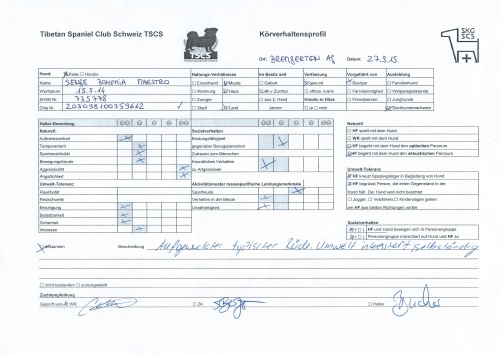 Tibetan Spaniel Club Schweiz TSCS
Körverhaltensprofil
SKG
SCS
Ort: BREMGARTEN AG Datum: 27.9.15
Hund: Rüde Hündin
Name SENGE BOHEMIA MAESTRO
Wurfdatum 15.5.14
SHSB Nr. 735778
Chip Nr.
Haltungs-Verhältnisse
Einzelhund Meute
Wohnung Haus
Zwinger
Stadt Land
Im Besitz seit
Geburt
dir.v.Züchter
aus 2. Hand
Jahren
Verfassung
gesund
offens. krank
Hündin in Hitze
Ja nein
Vorgeführt von
Besitzer
Familienmitglied
Fremdperson
Ausbildung
Familienhund
Welpenspielstunde
Junghunde
Halter-Bewertung
Naturell:
Aufmerksamkeit
Temperament
Spontanität
Bewegungsfreude
Aggressivität
Ängstlichkeit
Umwelt-Toleranz:
Reaktivität
Reizschwelle
Beruhigung
Belastbarkeit
Sicherheit
Interesse
Sozialverhalten
Bindungsfähigkeit
gegenüber Bezugspersonen
Zutrauen zum Menschen
freundliches Verhalten
zu Artgenossen
Aktivitätsmuster rassespezifische Leistungsmerkmale
Spielfreude
Verhalten in der Meute
Unabhängigkeit
Naturell
HF spielt mit dem Hund
WR spielt mit dem Hund
HF begeht mit dem Hund den optischen Parcours
HF begeht mit dem Hund den akkustischen Parcours
Umwelt-Toleranz:
HF kreuzt Spaziergänger in Begleitung von Hund
HF begrüsst Person, die einen Gegenstand in der
Hand hält. Der Hund wird nicht beachtet
Jogger, Velofahrer, Kinderwagen gehen
am HF aus beiden Richtungen vorbei
Sozialverhalten
HF und Hund bewegen sich in Personengruppe
Personengruppe marschiert auf Hund und HF zu
bestanden Beschreibung Aufgeweckter typischer Rüde. Umwelt interessiert, selbständig
nicht bestanden zurückgestellt
Zuchtempfehlung
Geprüft von WR ZK Halter